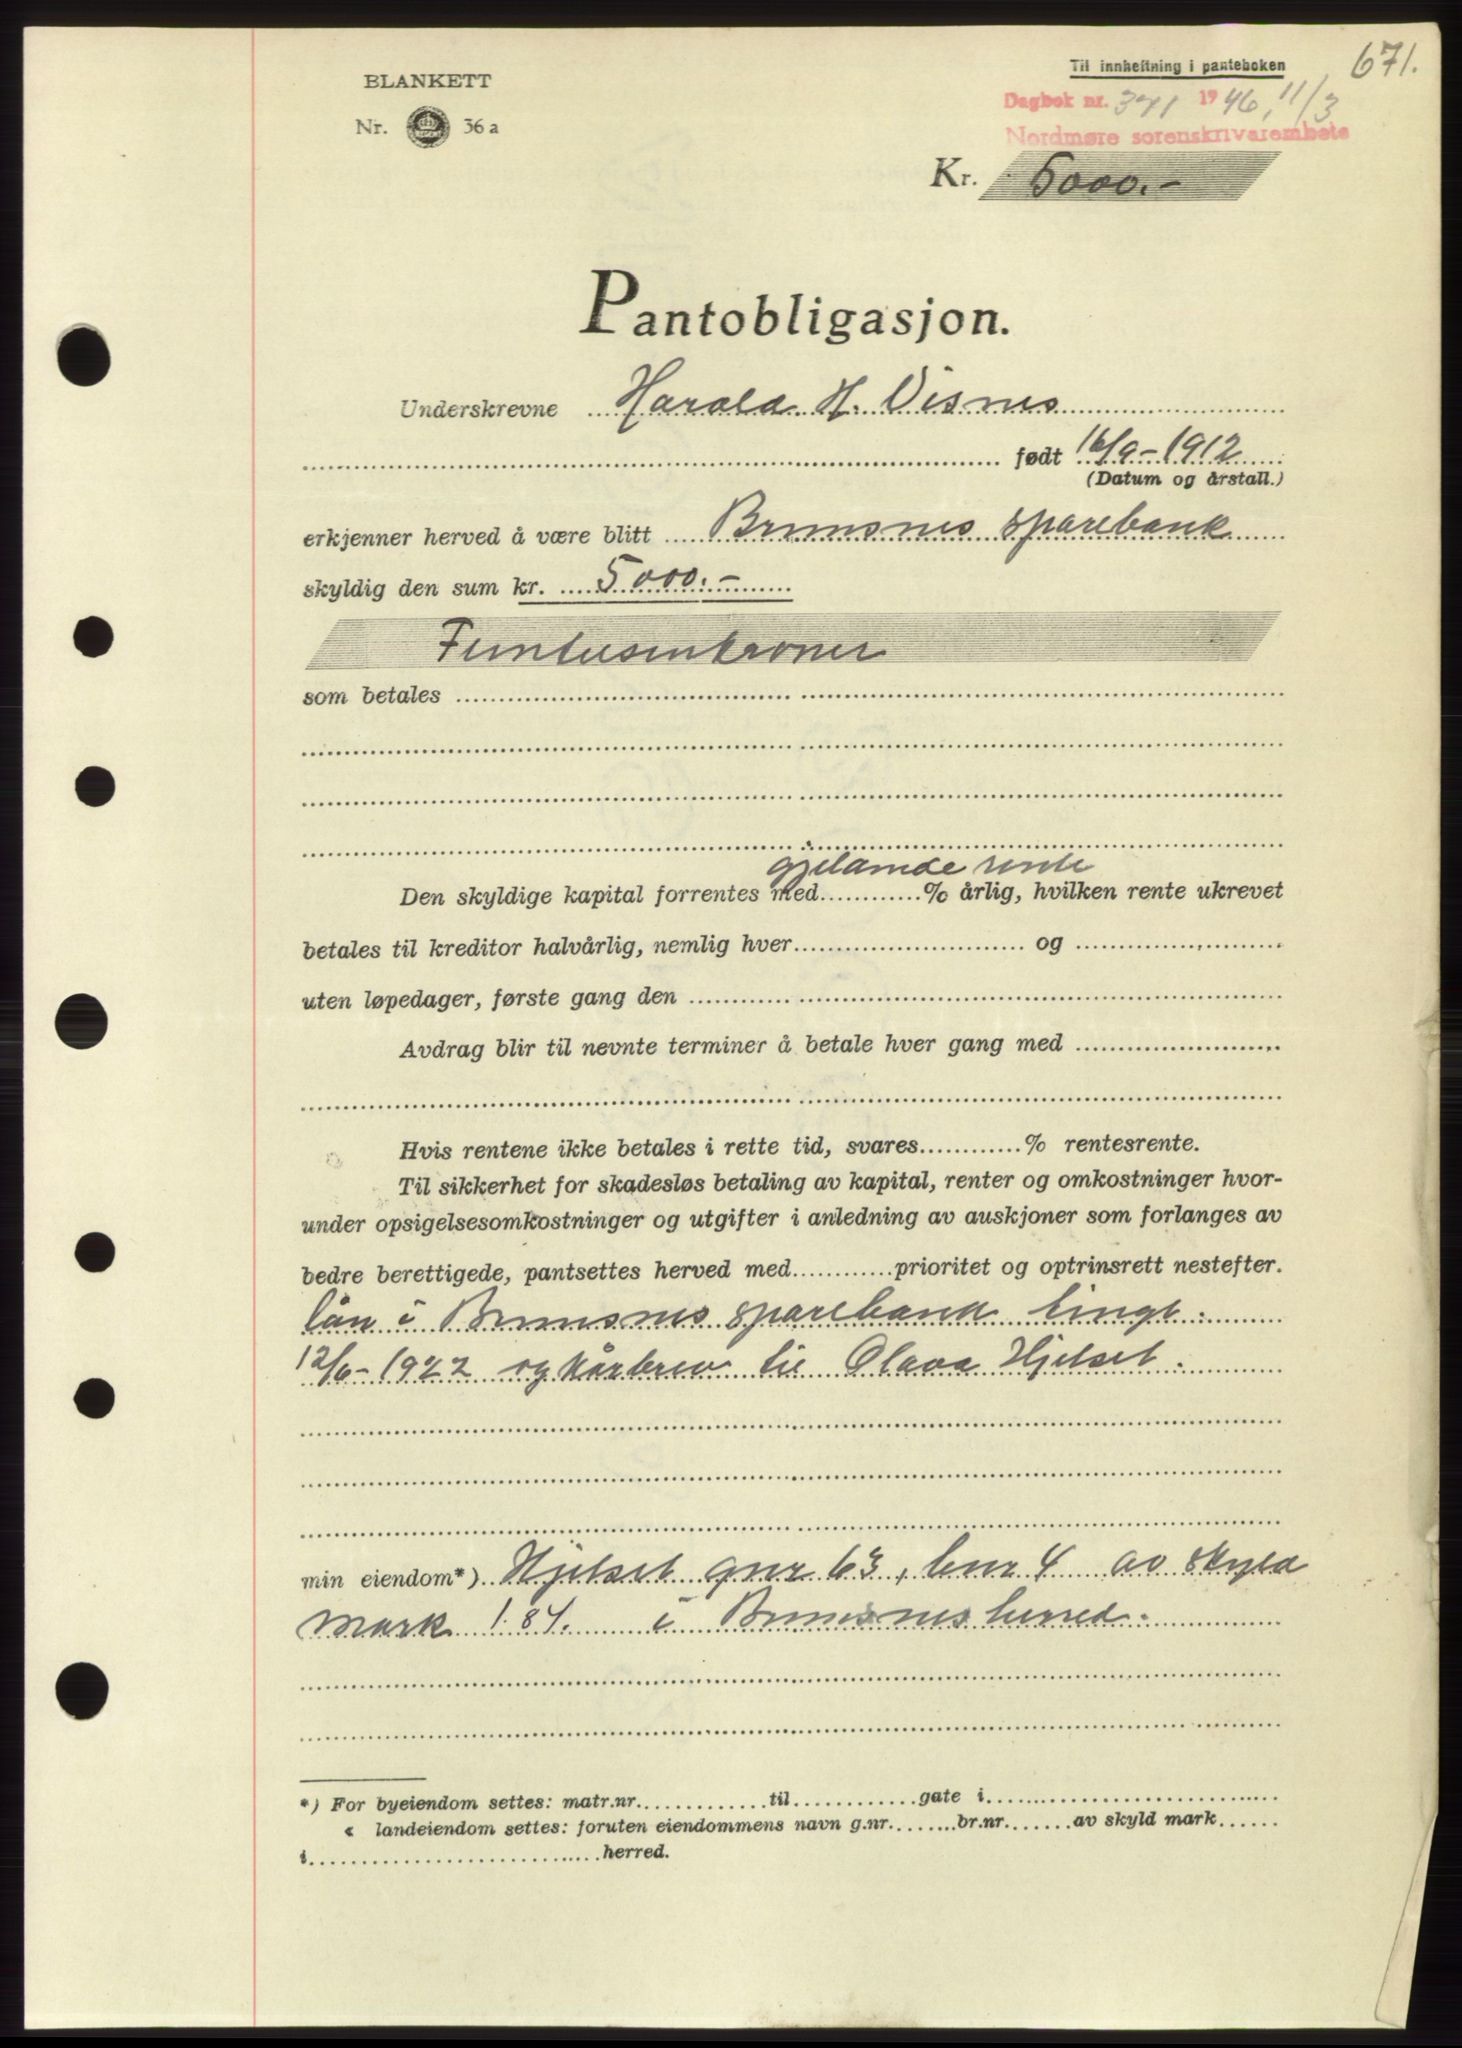 671.
Til innheftning i panteboken
BLANKETT
Nr. 36a
Dagbok nr. 371 1946, 11/3
Nordmøre sorenskrivarembete
Kr. 5000.-
Pantobligasjon.
Underskrevne Harald H. Visnes
født 16/9-1912
(Datum og årstall.)
erkjenner herved å være blitt Brunsnes sparebank
skyldig den sum kr. 5000.-
Femtusenkroner
som betales
gjeldande rente
Den skyldige kapital forrentes med % årlig, hvilken rente ukrevet
betales til kreditor halvårlig, nemlig hver og
uten løpedager, første gang den
Avdrag blir til nevnte terminer å betale hver gang med
Hvis rentene ikke betales i rette tid, svares % rentesrente.
Til sikkerhet for skadesløs betaling av kapital, renter og omkostninger hvor-
under opsigelsesomkostninger og utgifter i anledning av auskjoner som forlanges av
bedre berettigede, pantsettes herved med prioritet og optrinsrett nestefter.
lån i Brunsnes sparebank tingl.
12/6-1922 og kårbrev til Olava Hjelset.
min eiendom*) Hjelset gnr 63, bnr 4 av skyld
mark 1.84. i Brunsnes herred.
*) For byeiendom settes: matr.nr. til gate i
« landeiendom settes: foruten eiendommens navn g.nr. br.nr. av skyld mark
i herred.